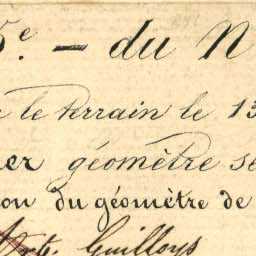 5e. - du N
le terrain le 13
er géomètre se
on du géomètre de
Guilloys